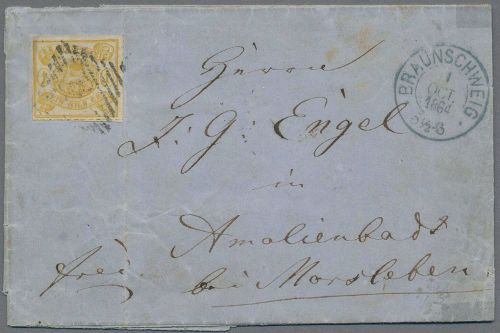 BRAUNSCHWEIG
1
OCT
1864
5½-6
Herrn
J. G. Engel
in
Amalienbad
frei. bei Morsleben